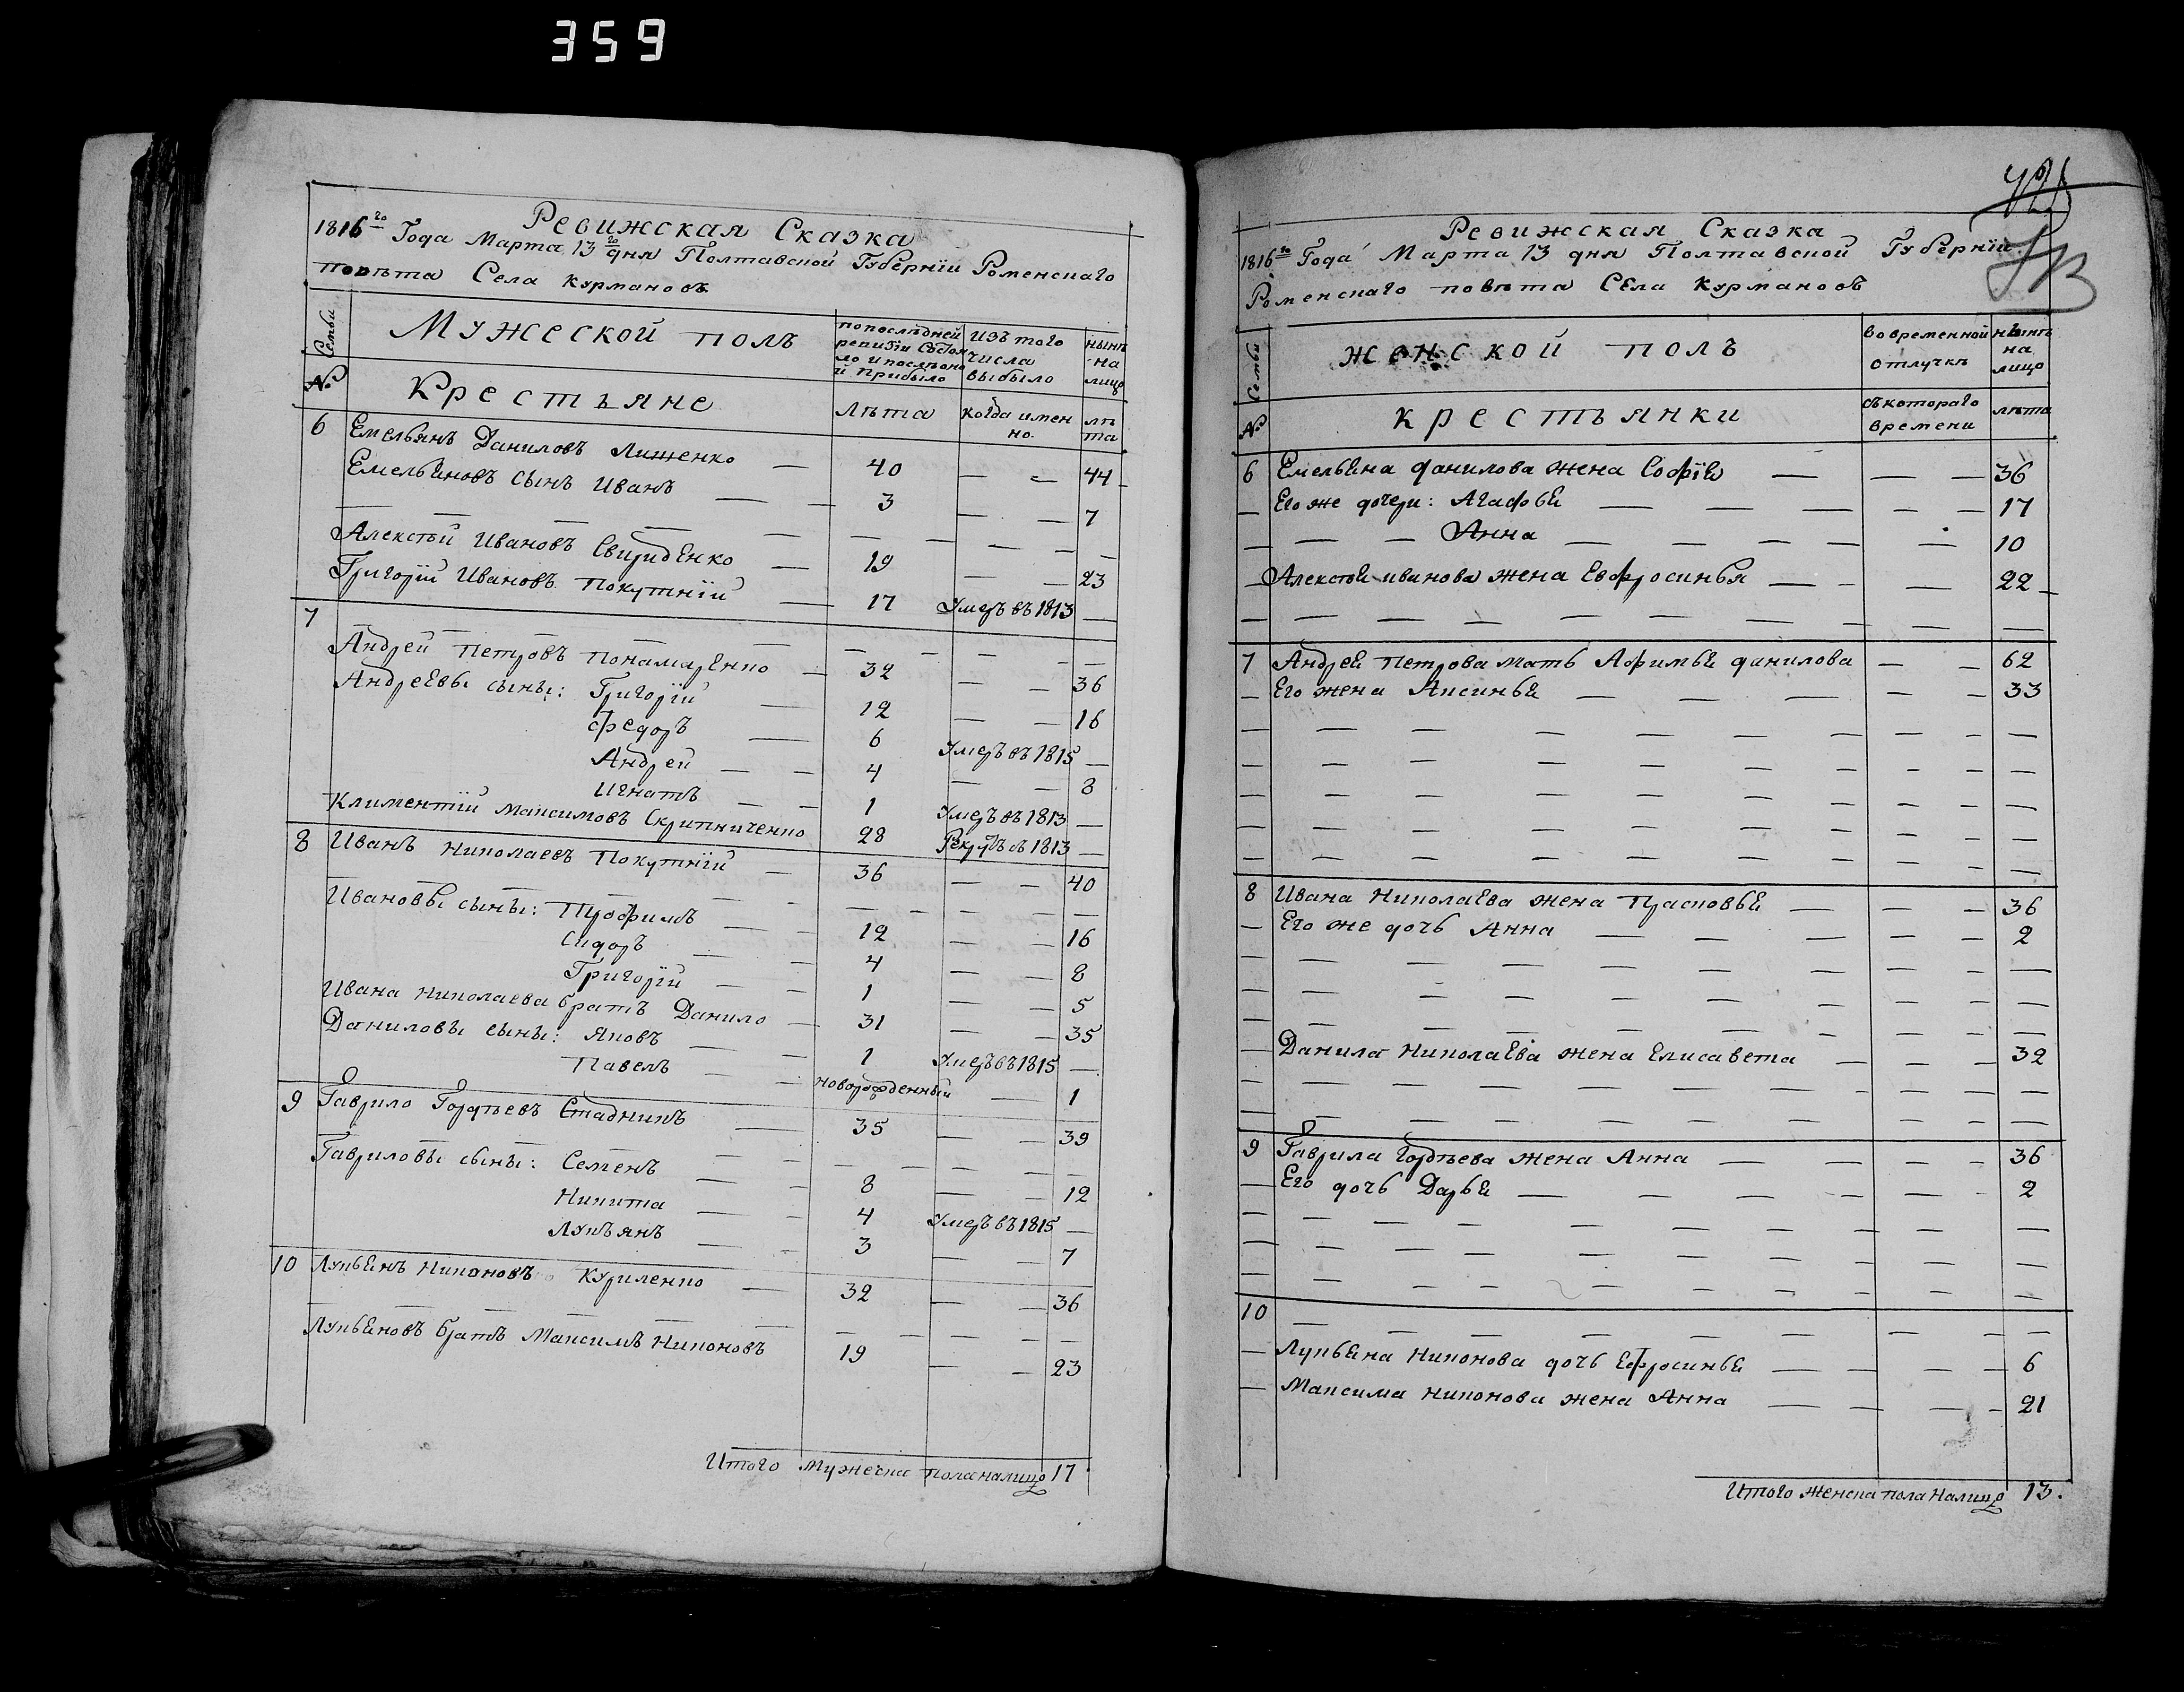 359
Ревижская Сказка
1816го Года Марта 13го дня Полтавской Губернїи Роменскаго
повѣта Села Курмановъ
Семьи № Мужеской полъ
попослѣдней ревизїи Состояло и послѣ оной прибыло
изъ того числа выбыло
нынѣ на лицо
Крестьяне Лѣта когда именно. лѣта
6 Емельянъ Даниловъ Лищенко — 40 — — 44
Емельяновъ сынъ Иванъ — — 3 — — 7
— — — — — — — — — —
Алексѣй Ивановъ Свириденко — 19 — — 23
Григорїй Ивановъ Покутнїй — 17 Умеръ въ 1813 —
7 — — — — — — — — —
Андрей Петровъ Понамаренко — 32 — — 36
Андреевы сыны: Григорїй — 12 — — 16
Федоръ — 6 Умеръ въ 1815 —
Андрей — — 4 — — 8
Игнатъ — — 1 Умеръ въ 1813 —
Климентїй Максимовъ Скрипниченко 28 Рекрутъ въ 1813 —
8 Иванъ Николаевъ Покутнїй — 36 — — 40
— — — — — — — — — —
Ивановы сыны: Трофимъ — — 12 — — 16
Сидоръ — — 4 — — 8
Григорїй — — 1 — — 5
Ивана Николаева братъ Данило — 31 — — 35
Даниловы сыны: Яковъ — — 1 Умеръ въ 1815 —
Павелъ — — новорожденный — 1
9 Гаврило Гордѣевъ Стадникъ — 35 — — 39
— — — — — — — — — —
Гавриловы сыны: Семенъ — — 8 — — 12
Никита — — 4 Умеръ въ 1815 —
Лукъянъ — — 3 — — 7
10 Лукьянъ Никоновъ Куриленко — 32 — — 36
— — — — — — — — — —
Лукьяновъ братъ Максимъ Никоновъ 19 — — 23
Итого Мужеска пола налицо 17
Ревижская Сказка
1816го Года Марта 13 дня Полтавской Губернїи
Роменскаго повѣта Села Курмановъ
Семьи № женской полъ
во временной отлучкѣ
нынѣ на лицо
крестьянки
съ котораго времени
лѣта
6 Емельяна Данилова жена Софїя — — — 36
— Его же дочери: Агафья — — — — — 17
— — — Анна — — — — — 10
— Алексѣя иванова жена Евфросинья — — — 22
— — — — — — — — — —
7 Андрея Петрова мать Афимья данилова — — 62
— Его жена Аксинья — — — — — 33
— — — — — — — — — —
— — — — — — — — — —
— — — — — — — — — —
— — — — — — — — — —
— — — — — — — — — —
8 Ивана Николаева жена Прасковья — — — 36
— Его же дочь Анна — — — — — 2
— — — — — — — — — —
— — — — — — — — — —
— — — — — — — — — —
— Данила Николаева жена Елисавета — — — 32
— — — — — — — — — —
— — — — — — — — — —
9 Гаврила Гордѣева жена Анна — — — — 36
— Его дочь Дарья — — — — — — 2
— — — — — — — — — —
— — — — — — — — — —
— — — — — — — — — —
10 — — — — — — — — —
— Лукьяна Никонова дочь Ефросинья — — — — 6
— Максима Никонова жена Анна — — — — 21
Итого Женска пола Налицо 13.